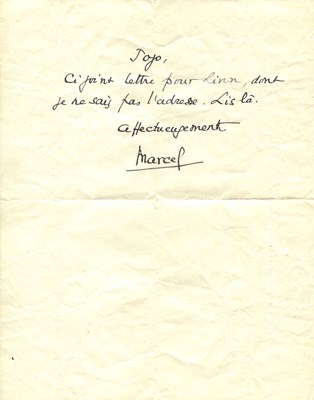 Jojo,
Ci joint lettre pour Linn, dont
je ne sais pas l'adresse. Lis là.
affectueusement
Marcel